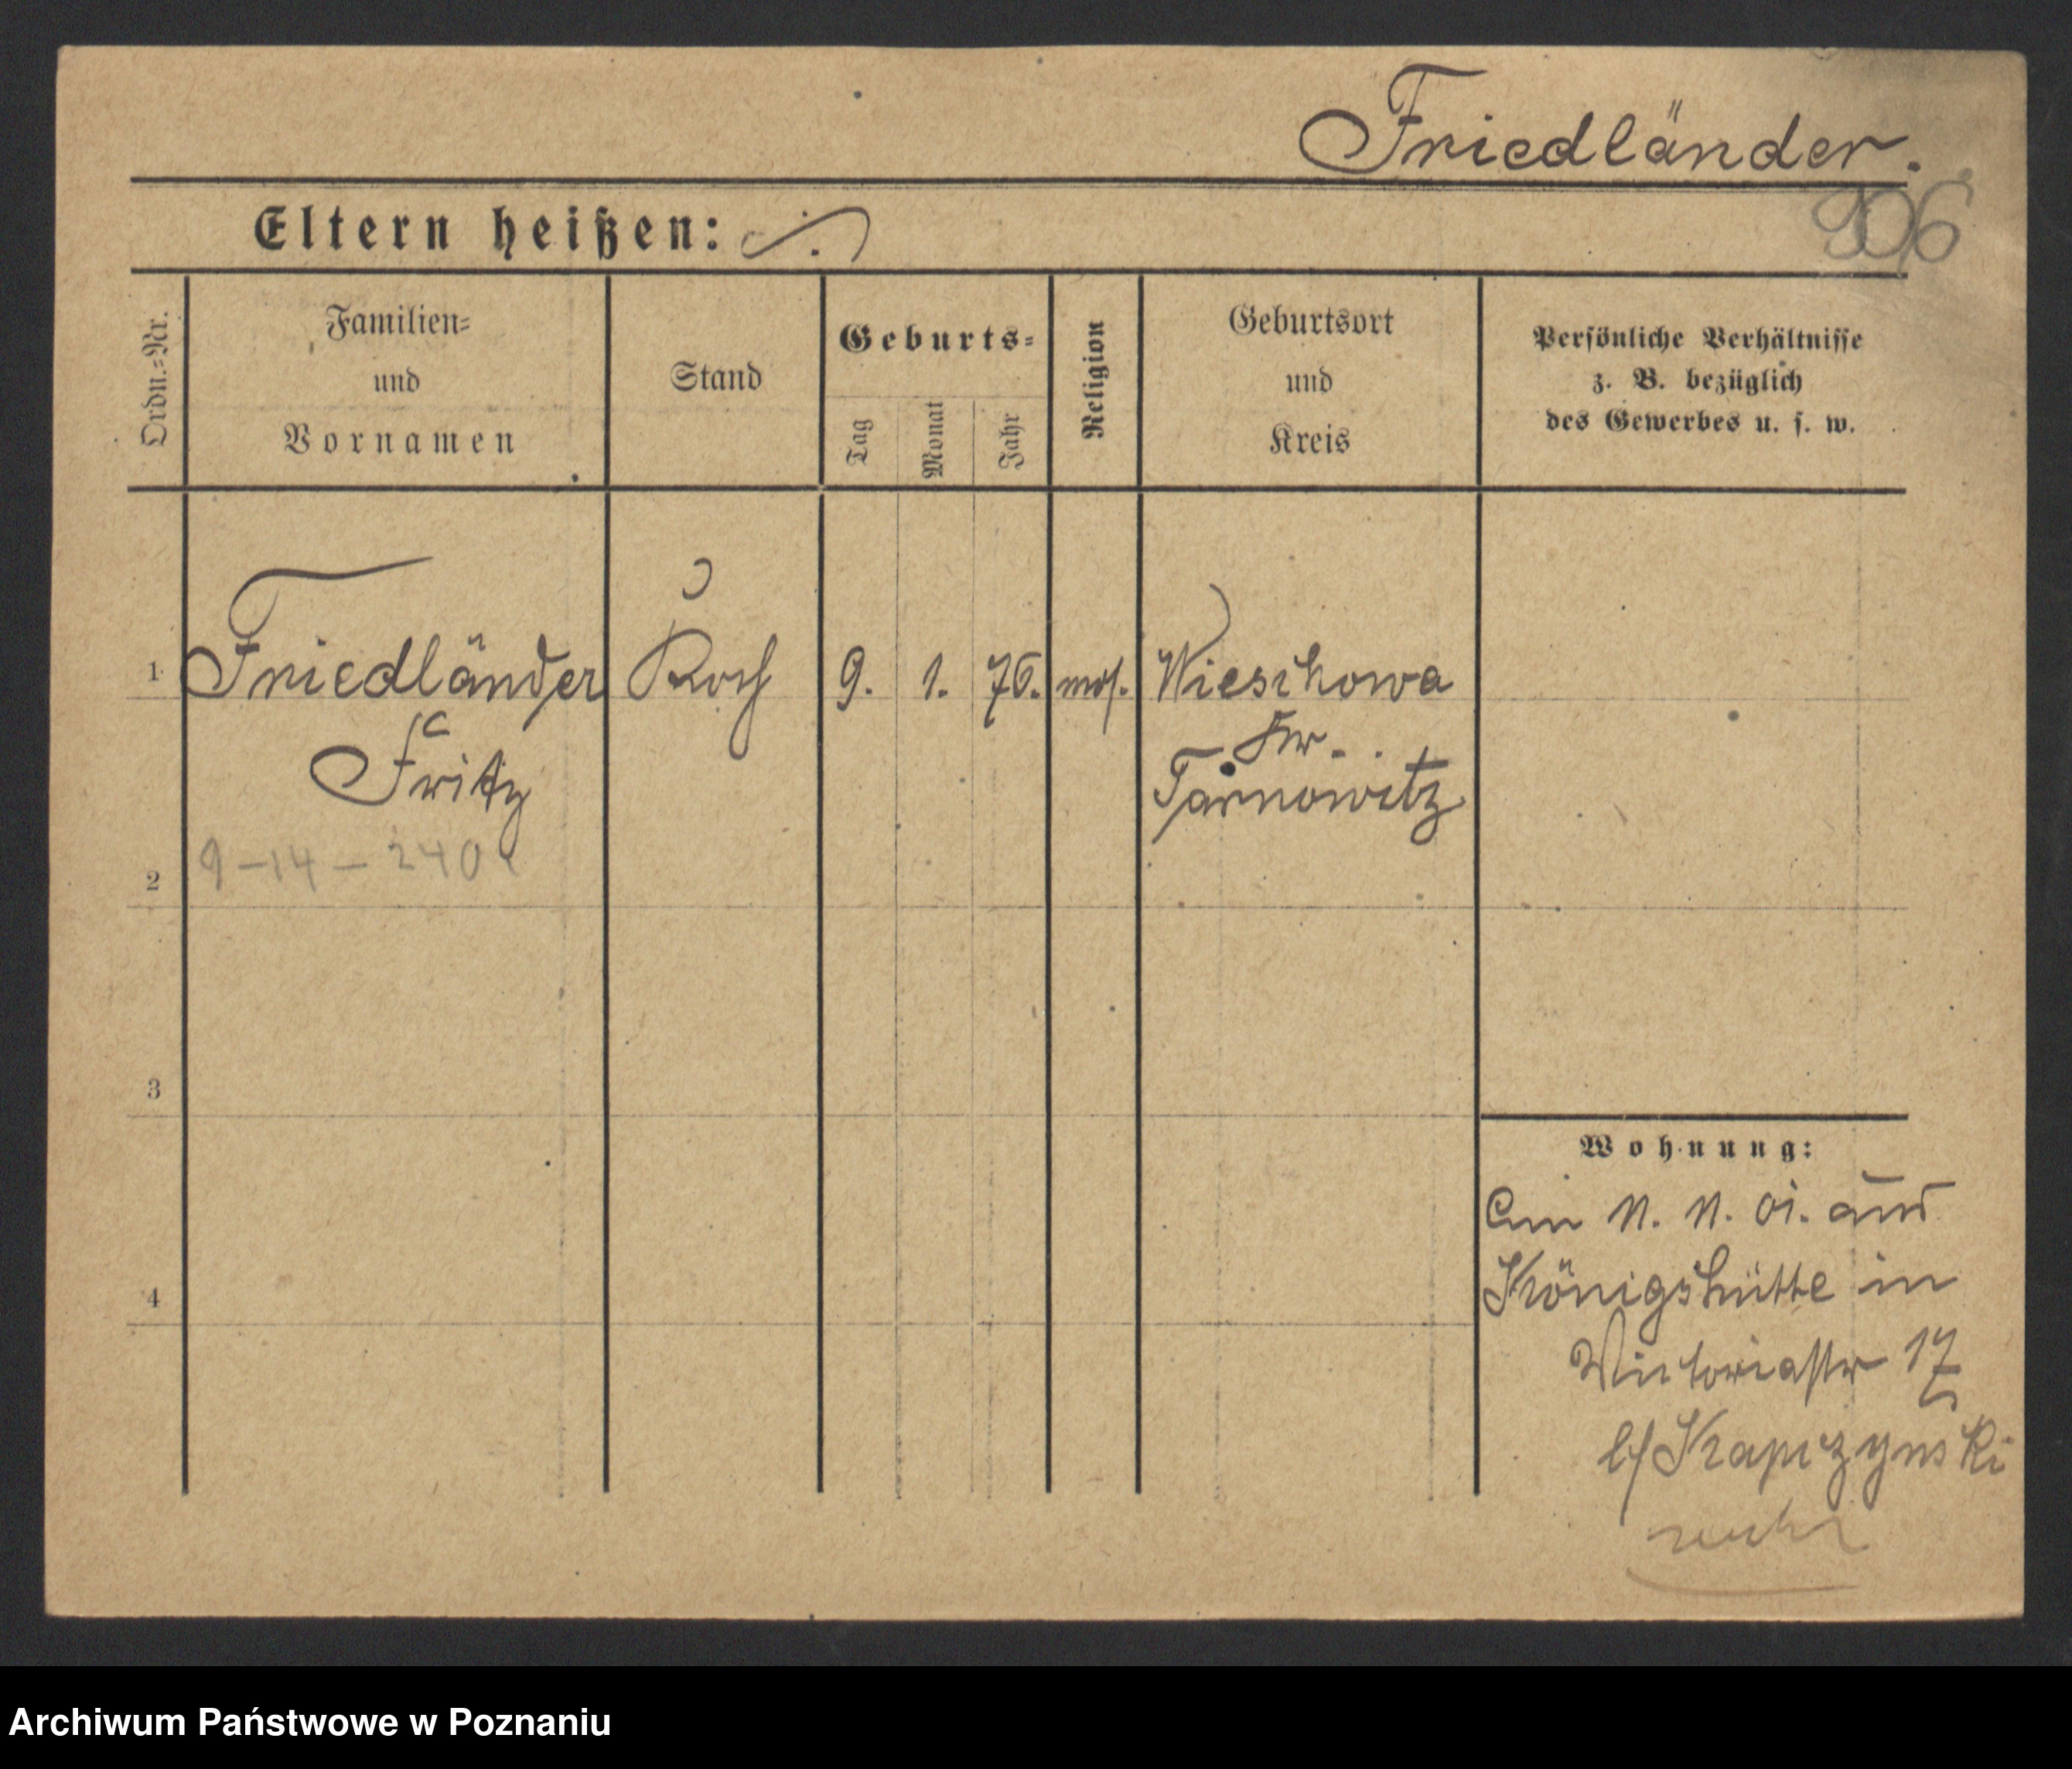 Friedländer.
906
Eltern heißen: ./.
Ordn.=Nr.
Familien=
und
Vornamen
Stand
Geburts=
Tag
Monat
Jahr
Religion
Geburtsort
und
Kreis
Persönliche Verhältnisse
z. B. bezüglich
des Gewerbes u. s. w.
1 Friedländer Koch 9. 1. 76. mos. Wieschowa
Kr.
Fritz Tarnowitz
9-14-240
2
3
4
Wohnung:
Am aus
Königshütte in
Victoriastr 17
b/ Krapczynski
Archiwum Państwowe w Poznaniu